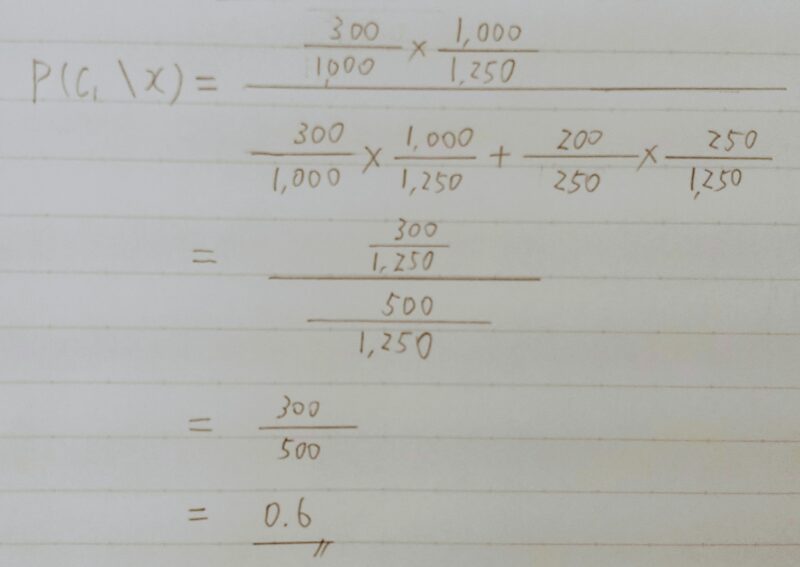 P(C₁ \ x) = (300/1,000 × 1,000/1,250) / (300/1,000 × 1,000/1,250 + 200/250 × 250/1,250)
= (300/1,250) / (500/1,250)
= 300/500
= 0.6